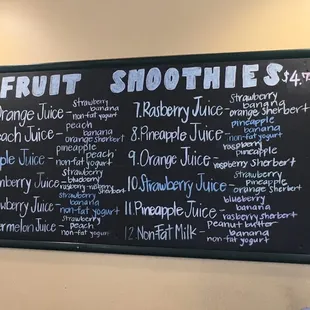 FRUIT SMOOTHIES $4.
Orange Juice - strawberry banana non-fat yogurt
Peach Juice - peach banana orange sherbert
Apple Juice - pineapple peach non-fat yogurt
Cranberry Juice - strawberry blueberry raspberry sherbert
Strawberry Juice - strawberry banana non-fat yogurt
Watermelon Juice - strawberry peach non-fat yogurt
7. Rasberry Juice - strawberry banana orange Sherbert
8. Pineapple Juice - pineapple banana non-fat yogurt
9. Orange Juice - raspberry pineapple raspberry Sherbert
10. Strawberry Juice - strawberry pineapple orange sherbert
11. Pineapple Juice - blueberry banana raspberry sherbert
12. Non-Fat Milk - peanut butter banana non-fat yogurt